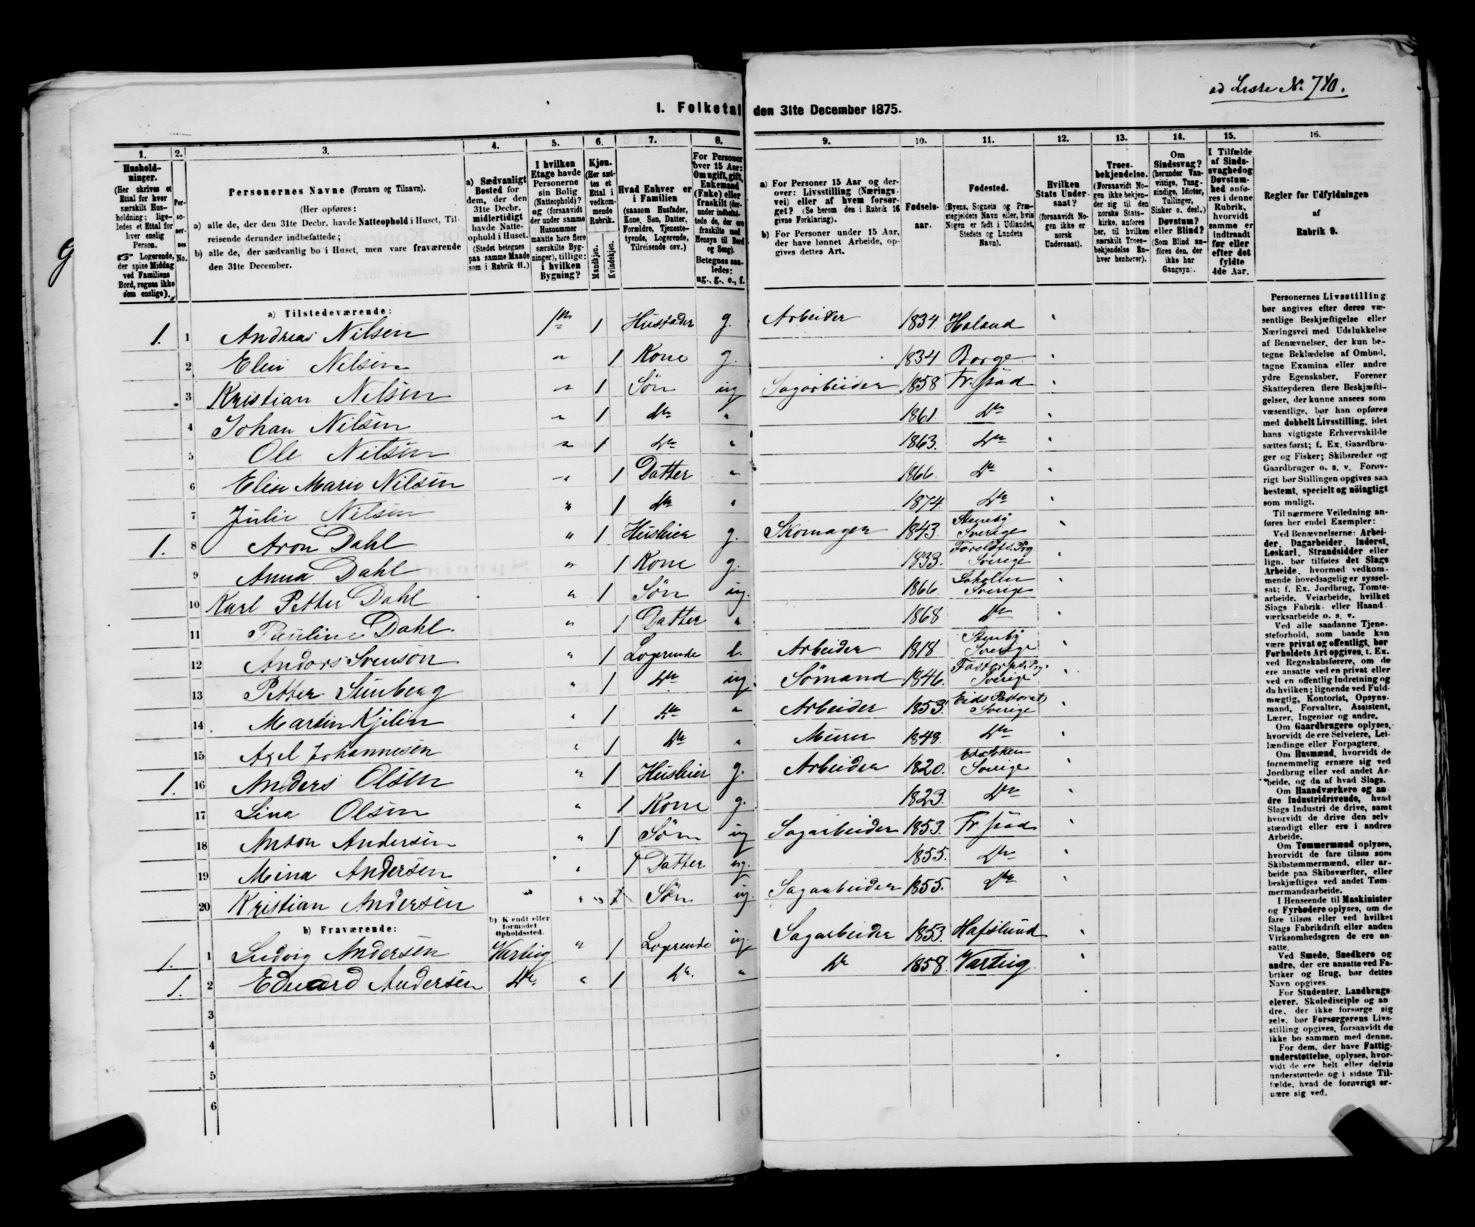 ad Liste No. 740.
I. Folketal den 31te December 1875.
1. 2. 3. 4. 5. 6. 7. 8. 9. 10. 11. 12. 13. 14. 15. 16.
Husholdninger.
(Her skrives et Ettal for hver særskilt Husholdning; ligeledes et Ettal for hver enslig Person.
Logerende, der spise Middag ved Familiens Bord, regnes ikke som enslige).
Personernes No.
Personernes Navne (Fornavn og Tilnavn).
(Her opføres:
a) alle de, der den 31te Decbr. havde Natteophold i Huset, Tilreisende derunder indbefattede;
b) alle de, der sædvanlig bo i Huset, men vare fraværende den 31te December.
a) Sædvanligt Bosted for dem, der den 31te Decbr. midlertidigt havde Natteophold i Huset.
(Stedet betegnes paa samme Maade som i Rubrik 11.)
I hvilken Etage havde Personerne sin Bolig (Natteophold)? og (forsaavidt der under samme Husnummer maatte høre flere særskilte Bygninger), tillige: i hvilken Bygning?
Kjøn.
(Her sættes et Ettal i vedkommende Rubrik.
Mandkjøn. Kvindekjøn.
Hvad Enhver er i Familien
(saasom Husfader, Kone, Søn, Datter, Forældre, Tjenestetyende, Logerende, Tilreisende osv.)
For Personer over 15 Aar: Om ugift, gift, Enkemand (Enke) eller fraskilt (derunder indbefattede de, der ere fraskilte med Hensyn til Bord og Seng).
Betegnes saaledes: ug., g., e., f.
a) For Personer 15 Aar og derover: Livsstilling (Næringsvei) eller af hvem forsørget? (Se herom den i Rubrik 16 givne Forklaring).
b) For Personer under 15 Aar, der have lønnet Arbeide, opgives dettes Art.
Fødselsaar.
Fødested.
(Byens, Sognets og Præstegjeldets Navn eller, hvis Nogen er født i Udlandet, Stedets og Landets Navn).
Hvilken Stats Undersaat?
(forsaavidt Nogen ikke er norsk Undersaat).
Troesbekjendelse.
(Forsaavidt Nogen ikke bekjender sig til den norske Statskirke, anføres her, til hvilken særskilt Troesbekjendelse Enhver henhører).
Om Sindssvag? (herunder Vanvittige, Tungsindige, Idioter, Tullinger, Sinker o. desl.) Døvstum? eller Blind? (Som Blind anføres den, der ikke har Gangsyn).
I Tilfælde af Sindssvaghed og Døvstumhed anføres i denne Rubrik, hvorvidt samme er indtraadt før eller efter det fyldte 4de Aar.
Regler for Udfyldningen af Rubrik 9.
a) Tilstedeværende:
1. 1 Andreas Nilsen 1 Husfader g. Arbeider 1834 Høland
2 Elen Nilsen " 1 Kone g. 1834 Borge
3 Kristian Nilsen " 1 Søn ug Sagarbeider 1858 Fr. stad
4 Johan Nilsen " 1 do " 1861 do
5 Ole Nilsen " 1 do " 1863. do
6 Elise Marie Nilsen " 1 Datter " 1866 do
7 Julie Nilsen " 1 do " 1874. do
1. 8 Aron Dahl " 1 Husbier g. Skomager 1843 Stenby Sverige
9 Anna Dahl " 1 Kone g. 1833. Sverige
10 Karl Petter Dahl " 1 Søn ug. 1866. Sverige
11 Pauline Dahl. " 1 Datter " 1868 do
12 Anders Svenson " 1 Logerende e. Arbeider 1818 Stenby Sverige
13 Petter Stenberg " 1 do ug. Sømand 1846. Sverige
14 Martin Kjelin " 1 do " Arbeider 1853. Eids Pastorat, Sverige
15 Axel Johannesen " 1 do " Murer 1848. do
1. 16 Anders Olsen " 1 Husbier g. Arbeider 1820. Sverige
17 Lina Olsen " 1 Kone g. 1823. do
18 Anton Andersen " 1 Søn ug Sagarbeider 1853. Fr. stad
19 Mina Andersen " 1 Datter ug. 1855. do
20 Kristian Andersen " " 1 Søn ug. Sagarbeider 1855. do
b) Fraværende:
b) Kendt eller formodet Opholdssted.
1. 1 Ludvig Andersen Varteig " 1 Logerende ug Sagarbeider 1853. Hafslund
1. 2 Eduard Andersen do. " 1 do. " do 1858. Varteig
3
4
5
6
Personernes Livsstilling bør angives efter deres væsentlige Beskjæftigelse eller Næringsvei med Udelukkelse af Benævnelser, der kun betegne Beklædelse af Ombud, tagne Examina eller andre ydre Egenskaber. Forener Skatteyderen flere Beskjæftigelser, der kunne ansees som væsentlige, bør han opføres med dobbelt Livsstilling, idet hans vigtigste Erhvervskilde sættes først; f. Ex. Gaardbruger og Fisker; Skibsreder og Gaardbruger o. s. v. Forøvrigt bør Stillingen opgives saa bestemt, specielt og nøiagtigt som muligt.
Til nærmere Veiledning anføres her endel Exempler:
Ved Benævnelserne: Arbeider, Dagarbeider, Inderst, Løskarl, Strandsidder eller lign. bør tilføies det Slags Arbeide, hvormed vedkommende hovedsagelig er sysselsat; f. Ex. Jordbrug, Tomtearbeide, Veiarbeide, hvilket Slags Fabrik- eller Haandværksarbeide o. s. v.
Ved alle saadanne Tjenesteforhold, som baade kan være privat og offentligt, bør Forholdets Art opgives, t. Ex. ved Regnskabsførere, om de ere ansatte ved en privat eller ved en offentlig Indretning og da hvilken; lignende ved Fuldmægtig, Kontorist, Opsynsmand, Forvalter, Assistent, Lærer, Ingeniør og andre.
Om Gaardbrugere oplyses, hvorvidt de ere Selveiere, Leilændinge eller Forpagtere.
Om Husmænd, hvorvidt de fornemmelig ernære sig ved Jordbrug eller ved andet Arbeide, og da af hvad Slags.
Om Haandværkere og andre Industridrivende, hvad Slags Industri de drive, samt hvorvidt de drive den selvstændigt eller ere i andres Arbeide.
Om Tømmermænd oplyses, hvorvidt de fare tilsøs som Skibstømmermænd, eller arbeide paa Skibsværfter, eller beskjæftiges ved andet Tømmermandsarbeide.
I Henseende til Maskinister og Fyrbødere oplyses, om de fare tilsøs eller ved hvilket Slags Fabrikdrift eller anden Virksomhedsgren de ere ansatte.
Ved Smede, Snedkere og andre, der ere ansatte ved Fabriker og Brug, bør dettes Navn opgives.
For Studenter, Landbrugselever, Skoledisciple og andre, der ikke forsørge sig selv, bør Forsørgerens Livsstilling opgives, forsaavidt de ikke bo sammen med denne.
For dem, der have Fattigunderstøttelse, oplyses, hvorvidt de ere helt eller delvis understøttede og i sidste Tilfælde, hvad de forøvrigt ernære sig ved.